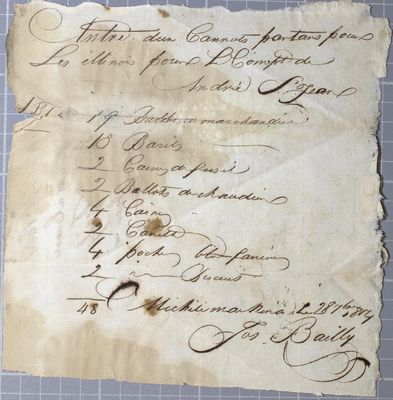 Entré d'un Cannots partans pour
Les illinois pour L Compt de
André St Jean
19 Ballots de marchandise
13 Barils
2 Caises de fusil
2 Ballots de chaudier
4 Caises
2
4 poches blé farine
2 Biscuis
48
Michilimackina Le 28 7bre
Jos. Bailly